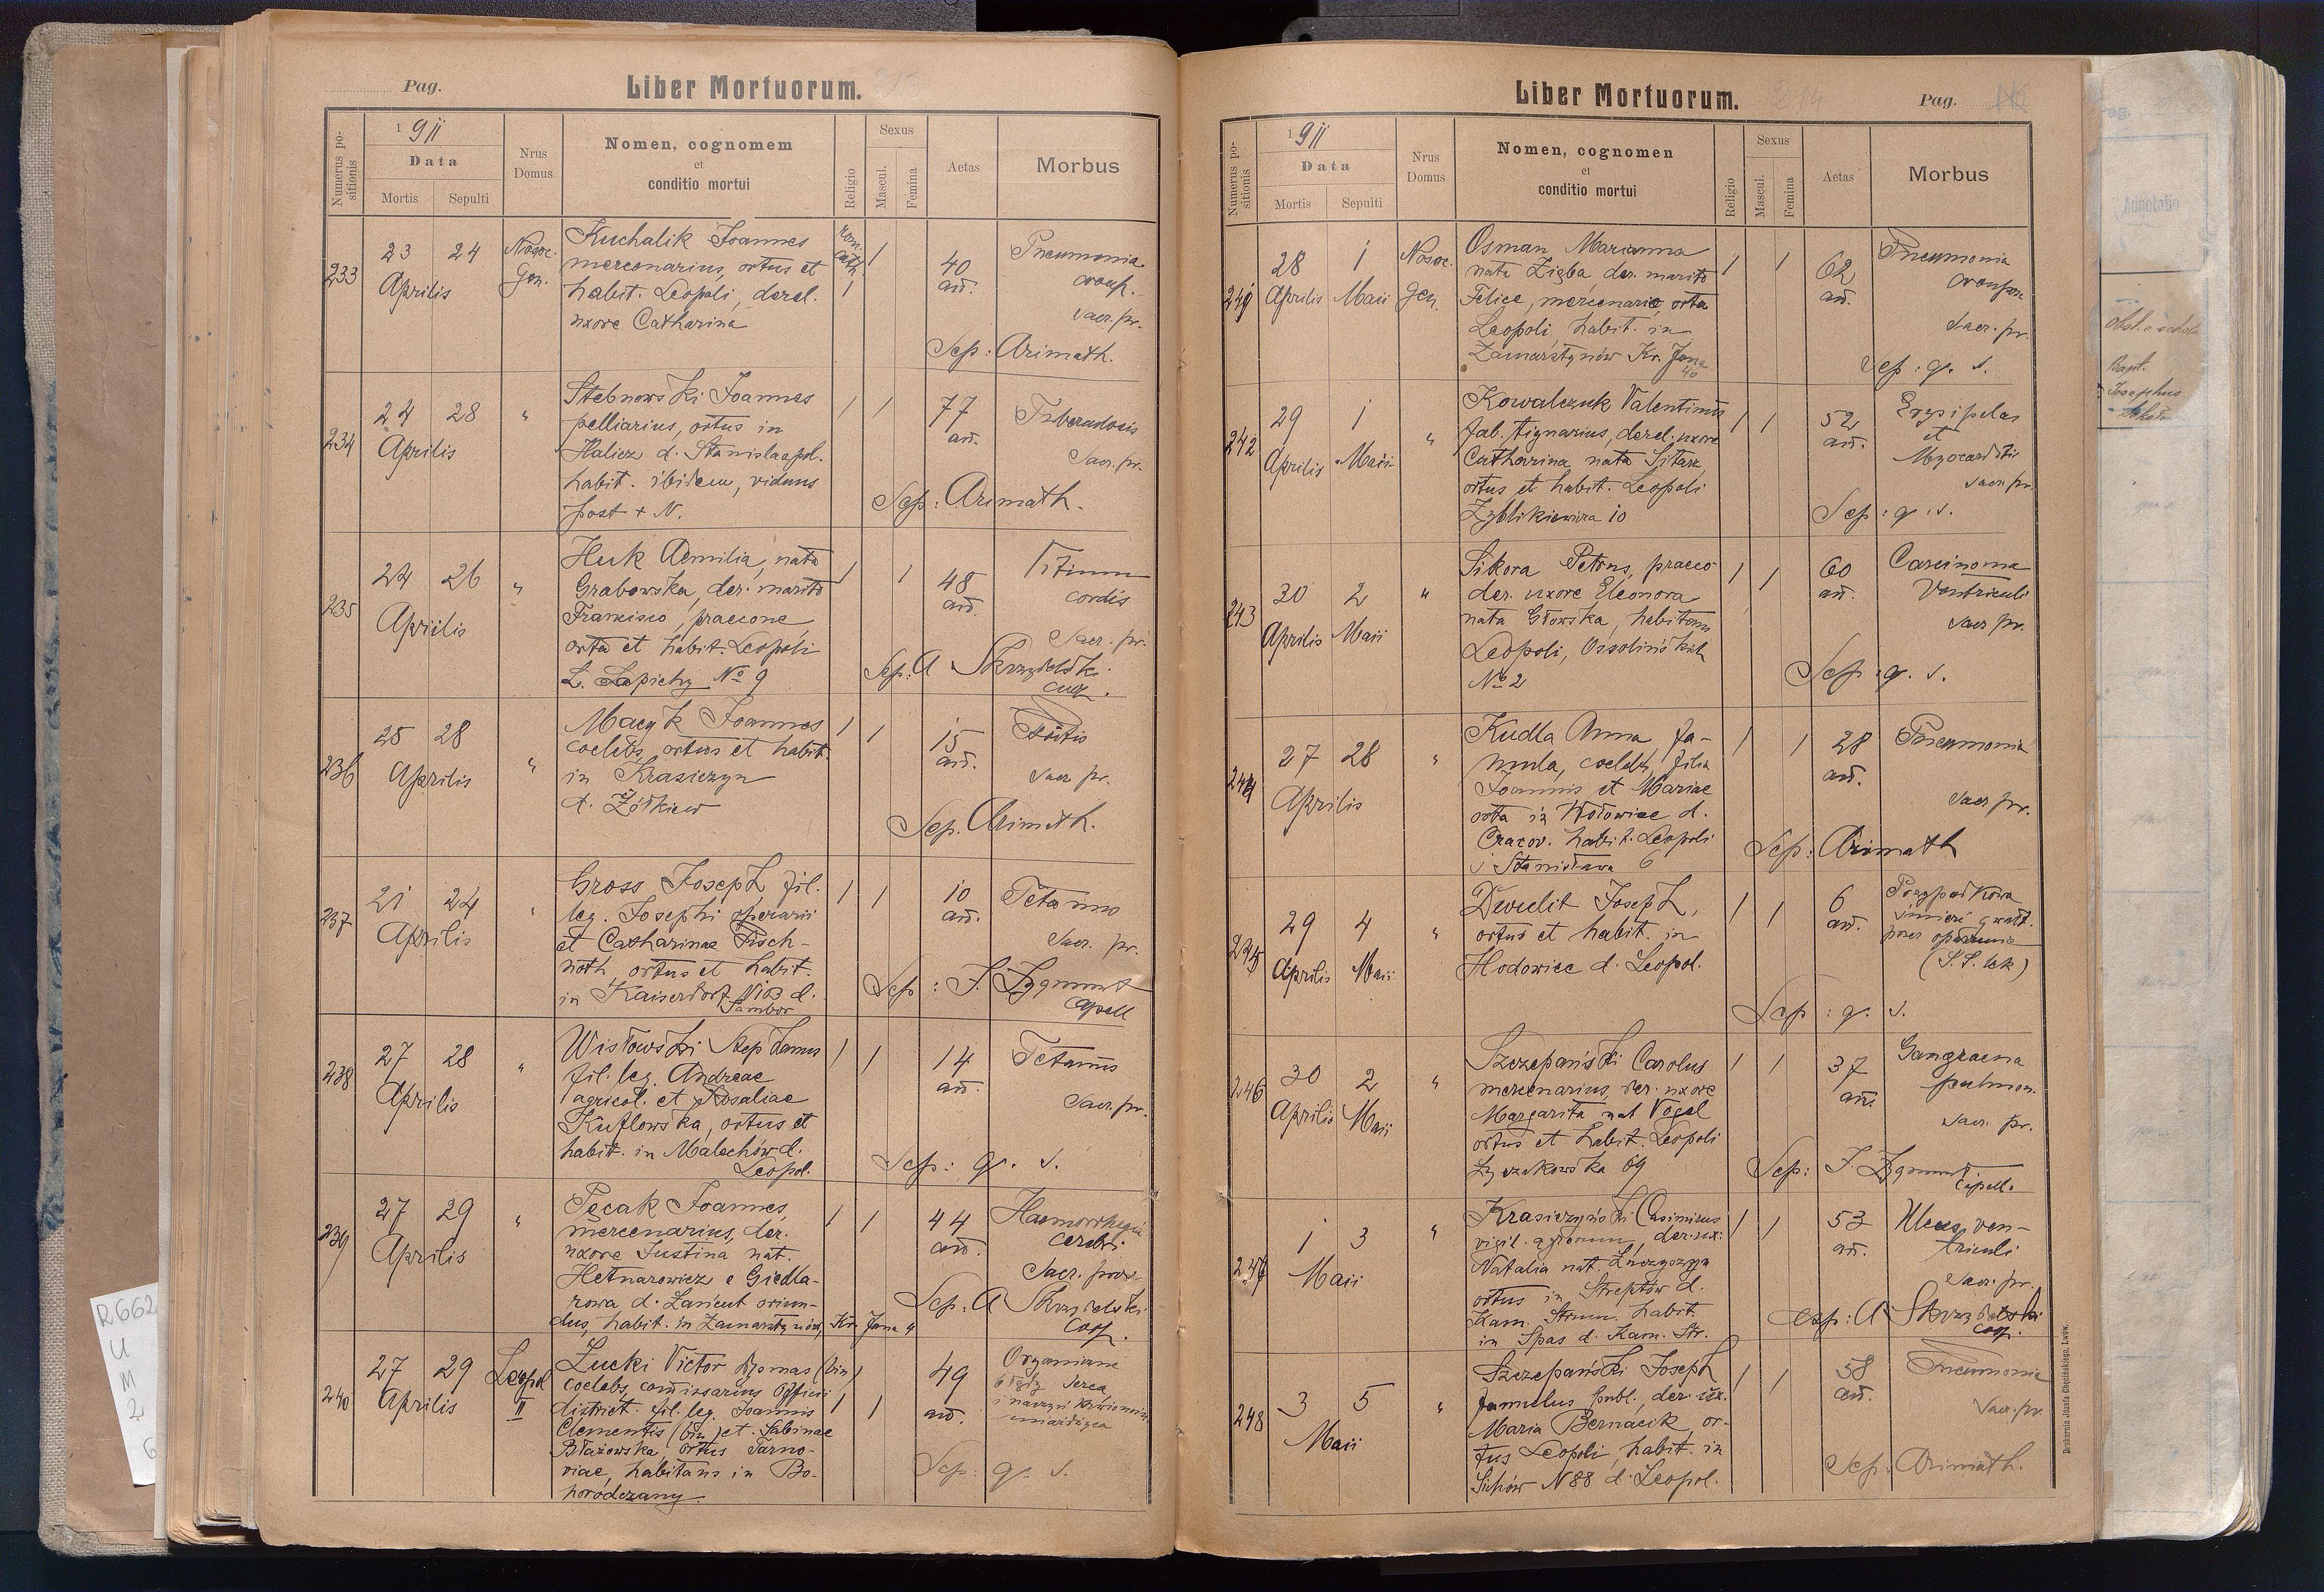 Pag.
Liber Mortuorum.
Numerus po-
sitionis
1911
Data
Mortis Sepulti
Nrus
Domus
Nomen, cognomem
et
conditio mortui
Religio
Sexus
Mascul. Femina
Aetas
Morbus
233
23 24
Aprilis
Nosoc.
Gen.
Kuchalik Joannes
mercenarius, ortus et
habit. Leopoli, derel.
uxore Catharina
rom.
cath.
1
1
40
an̄.
Pneumonia
croup.
Sacr. pr.
Sep: Arimath.
234
24 28
Aprilis
"
Stebnowski Joannes
pelliarius, ortus in
Halicz d. Stanislaopol.
habit. ibidem, viduus
post + N.
1 1
77
an̄.
Tuberculosis
Sacr. pr.
Sep: Arimath.
235
24 26
Aprilis
"
Huk Aemilia, nata
Grabowska, der. marito
Francisco, praecone
orta et habit. Leopoli
L. Sapiehy No 9
1 1
48
an̄.
Vitium
cordis
Sacr. pr.
Sep. A Skrzydelski
236
25 28
Aprilis
"
Macyk Joannes
coelebs, ortus et habit.
in Krasiczyn
d. Żółkiew
1 1
15
an̄.
Sacr pr.
Sep. Arimath.
237
21 24
Aprilis
"
Gross Joseph, fil.
leg. Josephi operarii
et Catharinae Fisch-
noth, ortus et habit.
in Kaiserdorf N103 d.
Sambor
1 1
10
an̄.
Tetanus
Sacr. pr.
Sep: J. Zygmunt
Capell
238
27 28
Aprilis
"
Wisłowski Stephanus
fil. leg. Andreae
agricol. et Rosaliae
Kuflowska, ortus et
habit. in Malechów d.
Leopol.
1 1
14
an̄.
Tetanus
Sacr. pr.
Sep: q. s.
239
27 29
Aprilis
"
Pecak Joannes,
mercenarius, der.
uxore Justina nat.
Hetnarowicz e Giedla-
rowa d. Łańcut oriun-
dus, habit. in Zamarstynów, Kr. Jana 4
1 1
44
an̄.
Haemorrhagia
cerebri
Sacr. prov.
Sep: A Skrzydelski
Coop.
240
27 29
Aprilis
Leopol
II
Zucki Victor Dysmas (bin)
coelebs, com̄issarius officii
district. fil. leg. Joannis
Clementis (bin) et Sabinae
Błażowska, ortus Tarno-
viae, habitans in Bo-
horodczany
1 1
49
an̄.
Organiczne
błędy serca
Sep: q. s.
Liber Mortuorum.
214
Pag.
Numerus po-
sitionis
1911
Data
Mortis Sepulti
Nrus
Domus
Nomen, cognomen
et
conditio mortui
Religio
Sexus
Mascul. Femina
Aetas
Morbus
241
28 1
Aprilis Maii
Nosoc.
Gen.
Osman Marianna
nata Zięba der. marito
Felice, mercenario, orta
Leopoli, habit. in
Zamarstynów Kr. Jana
46
1 1
62
an̄.
Pneumonia
crouposa
Sacr. pr.
Sep: q. s.
242
29 1
Aprilis Maii
"
Kowalczuk Valentinus
fab. tignarius, derel. uxore
Catharina nata Sitarz,
ortus et habit. Leopoli
Zyblikiewicza 10
1 1
52
an̄.
Erysipelas
et
Myocarditis
Sacr. pr.
Sep: q. s.
243
30 2
Aprilis Maii
"
Sikora Petrus, praeco
der. uxore Eleonora
nata Głowska, habitans
Leopoli, Ossolińskich
No 2
1 1
60
an̄.
Carcinoma
Ventriculi
Sacr pr.
Sep: q. s.
244
27 28
Aprilis
"
Kudla Anna, fa-
mula, coelebs, filia
Joannis et Mariae
orta in Wołowice d.
Cracov. habit. Leopoli
S Stanisława 6
1 1
28
an̄.
Pneumonia
Sacr pr.
Sep: Arimath
245
29 4
Aprilis Maii
"
Dwulit Joseph,
ortus et habit. in
Hodowice d. Leopol.
1 1
6
an̄.
Przypadkowa
śmierć gwałt.
przez oparzenie
Sep: q. s.
246
30 2
Aprilis Maii
"
Szczepański Carolus
mercenarius, der. uxore
Margarita nat Vogel
ortus et habit. Leopoli
Łyczakowska 69
1 1
37
an̄.
Gangraena
pulmon.
Sacr. pr.
Sep: J. Zygmunt
Capell.
247
1 3
Maii
"
Krasiczyński Casimirus
vigil. agrorum, der. ux.
Natalia nat.
ortus in Streptów d.
Kam. Strum. habit.
in Spas d. Kam. Str.
1 1
53
an̄.
Ulcus ven-
triculi
Sacr. pr.
Sep: A Skrzydelski
Coop.
248
3 5
Maii
"
Szczepański Joseph
famulus publ., der. ux.
Maria Bernacik, or-
tus Leopoli, habit. in
Sichów N 88 d. Leopol.
1 1
58
an̄.
Pneumonia
Sacr. pr.
Sep. Arimath.
Drukarnia Józefa Chęcińskiego, Lwów.
Annotatio
Bapt.
Josephus
R662
U
M
2